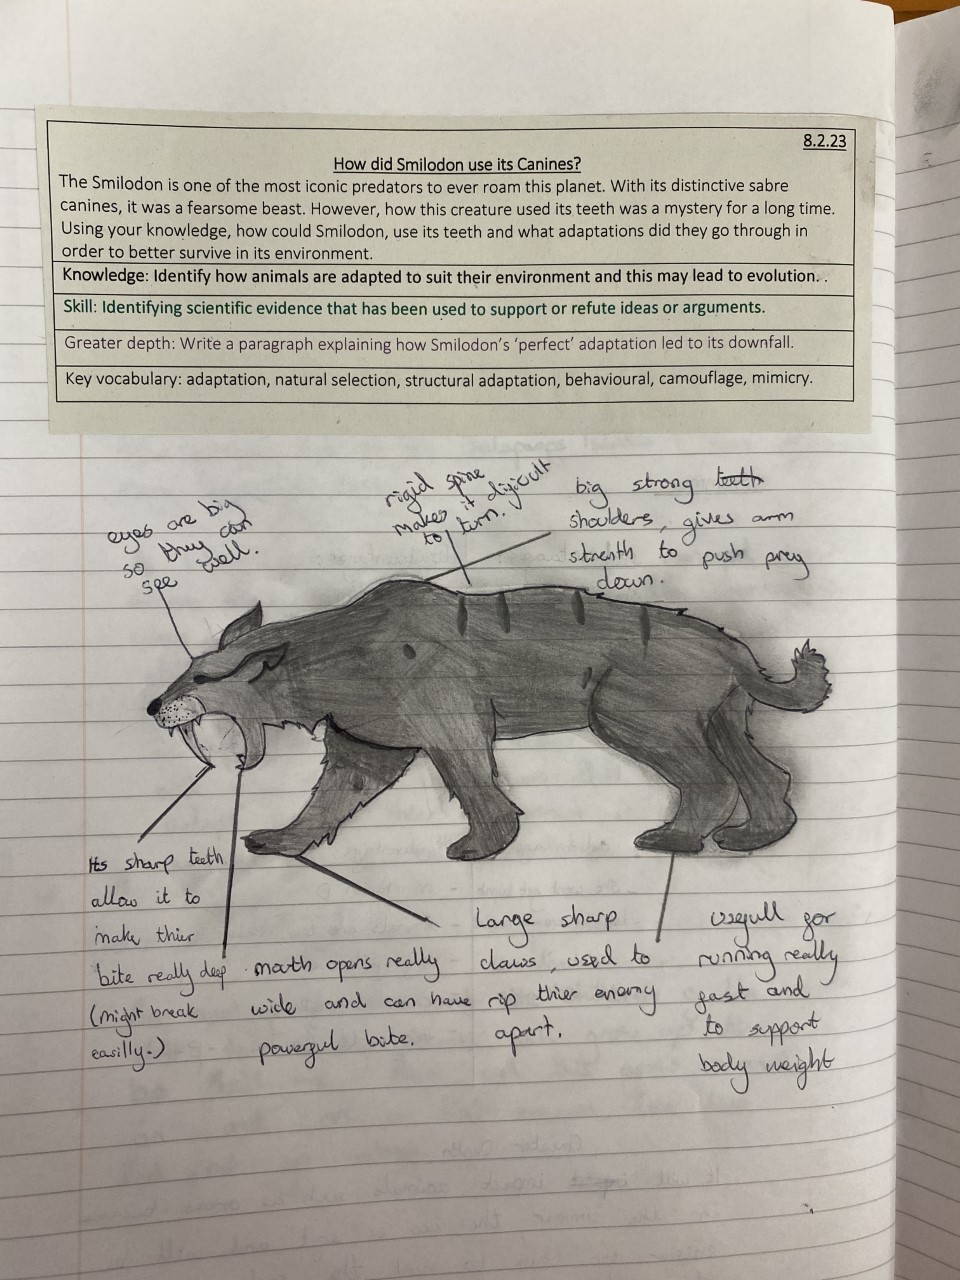 8.2.23
How did Smilodon use its Canines?
The Smilodon is one of the most iconic predators to ever roam this planet. With its distinctive sabre
canines, it was a fearsome beast. However, how this creature used its teeth was a mystery for a long time.
Using your knowledge, how could Smilodon, use its teeth and what adaptations did they go through in
order to better survive in its environment.
Knowledge: Identify how animals are adapted to suit their environment and this may lead to evolution. .
Skill: Identifying scientific evidence that has been used to support or refute ideas or arguments.
Greater depth: Write a paragraph explaining how Smilodon's 'perfect' adaptation led to its downfall.
Key vocabulary: adaptation, natural selection, structural adaptation, behavioural, camouflage, mimicry.
eyes are big
so they can
see well.
rigid spine
makes it dificult
to turn.
big strong teeth
shoulders, gives arm
strenth to push prey
down.
Its sharp teeth
allow it to
make thier
bite really deep
(might break
easilly.)
mouth opens really
wide and can have
powerful bite.
Large sharp
claws, used to
rip thier enemy
apart.
usefull for
running really
fast and
to support
body weight